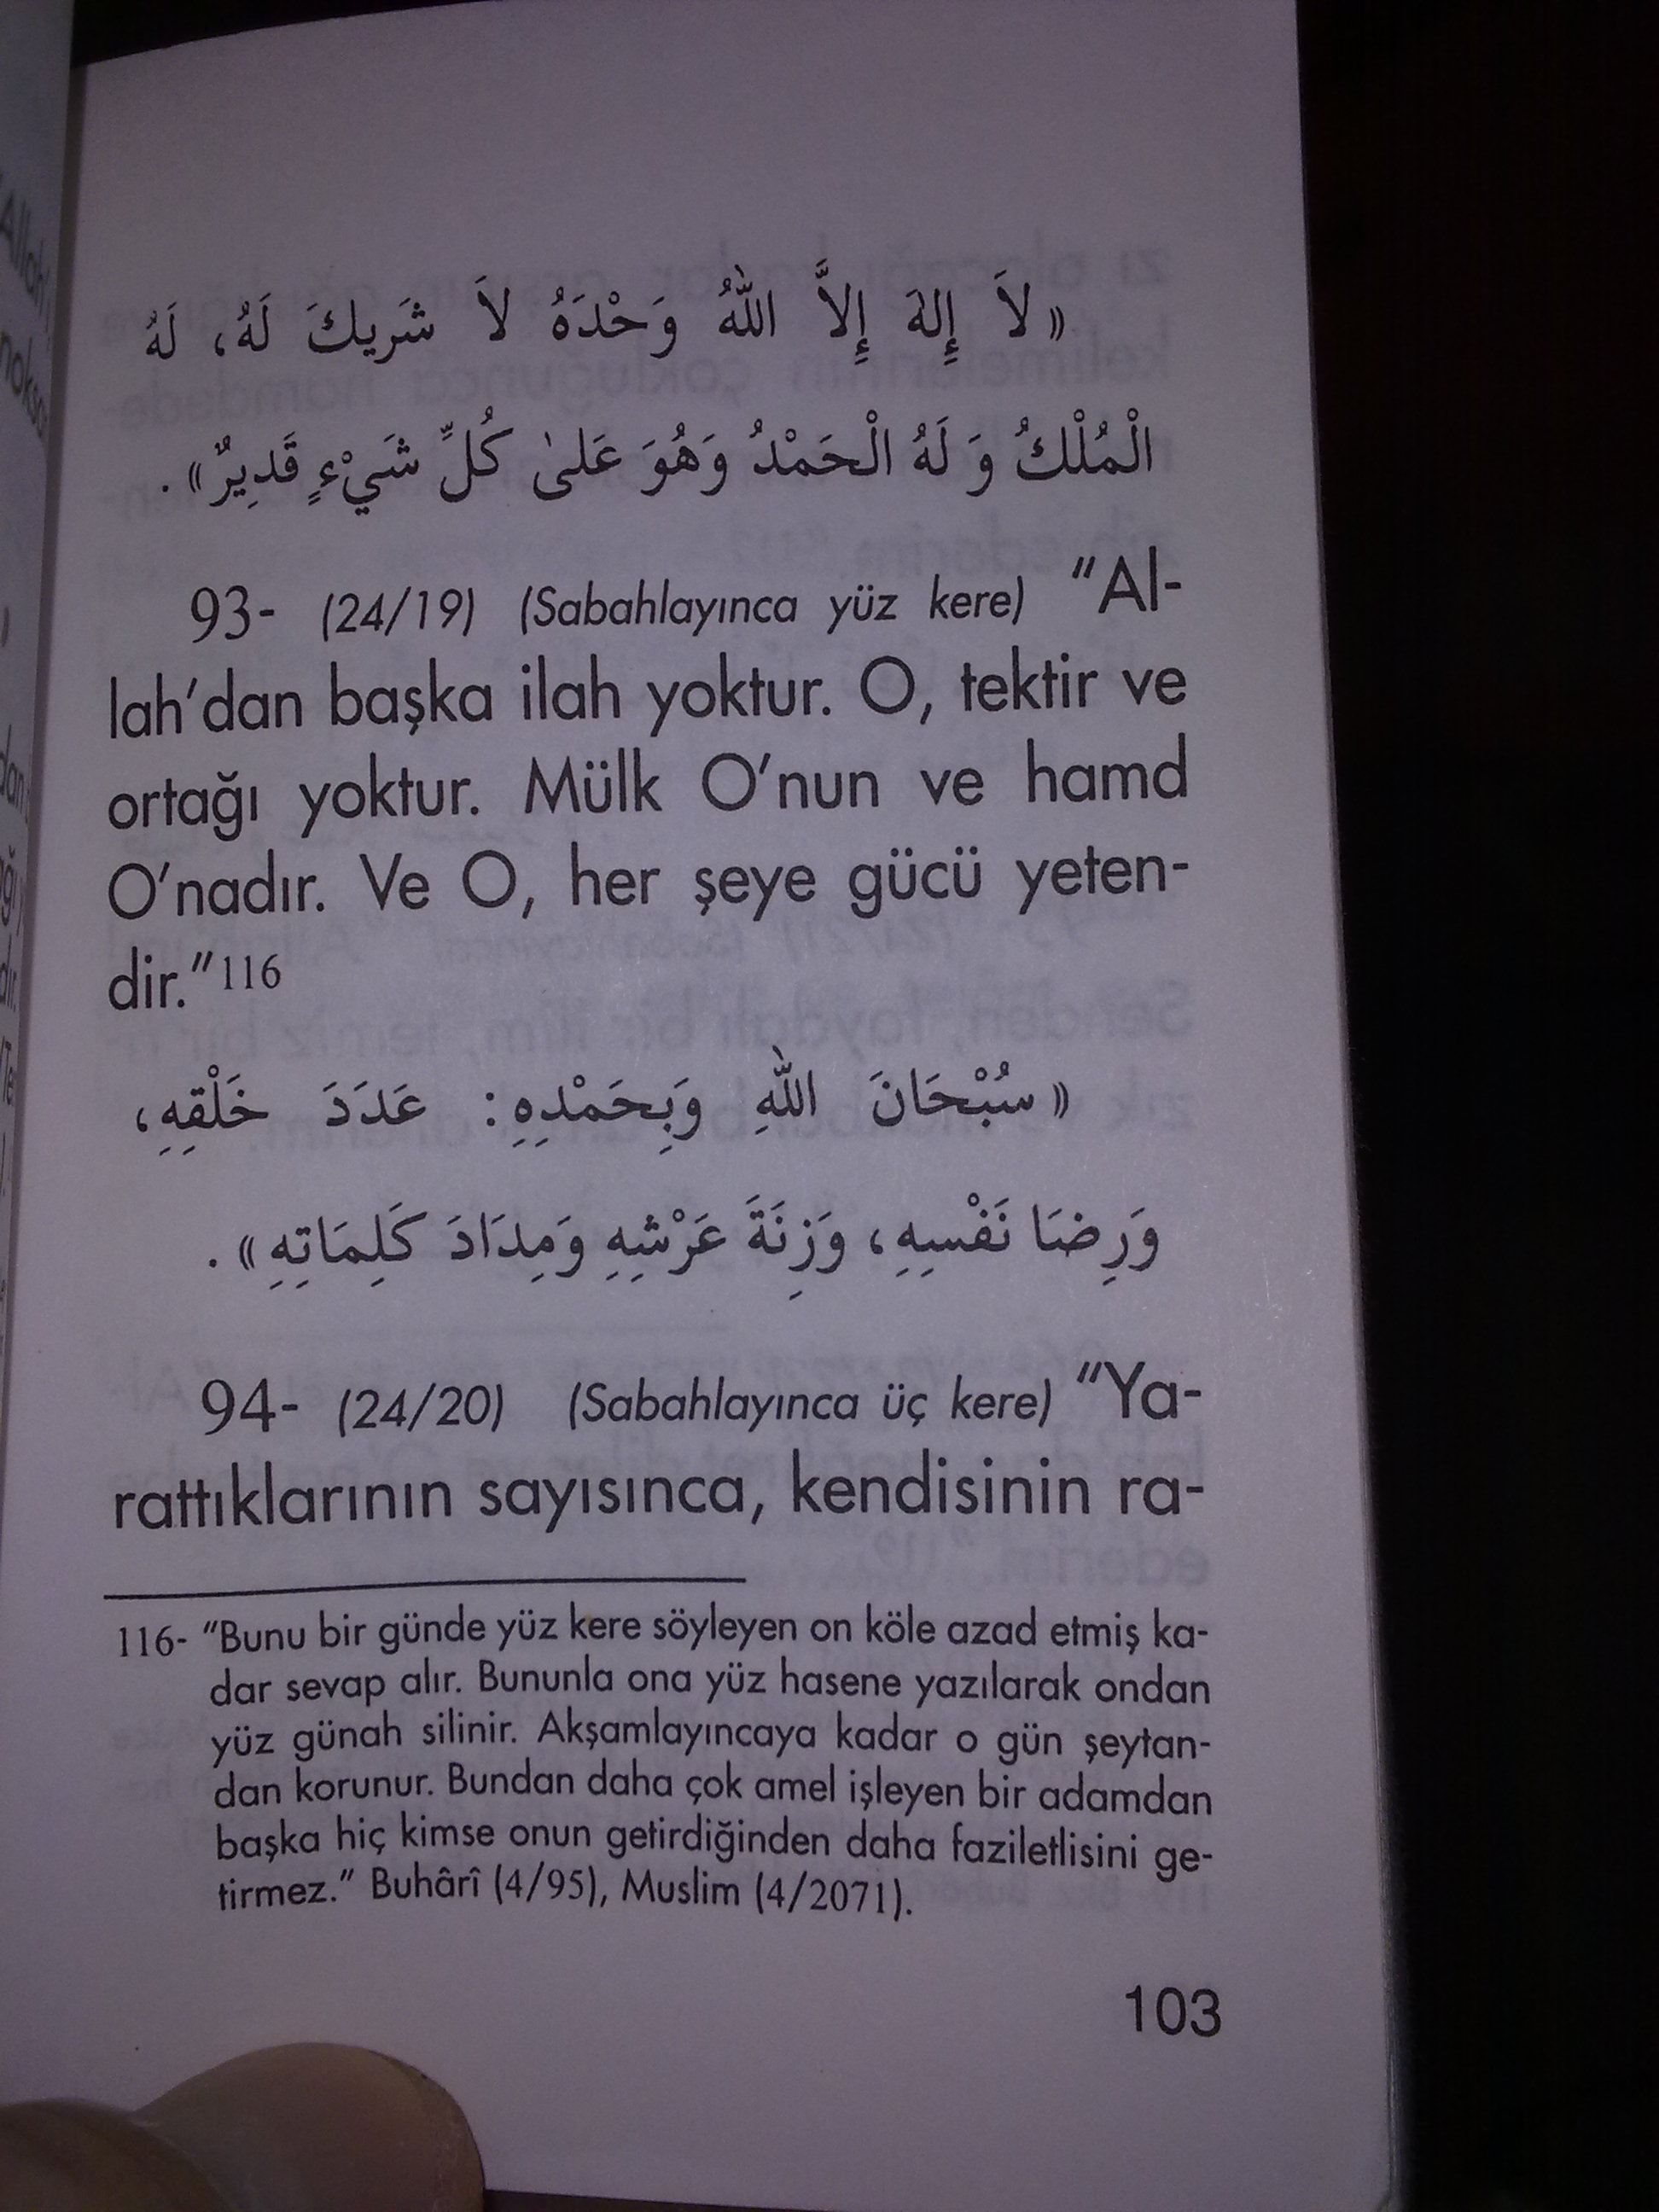 «لاَ إِلهَ إِلاَّ اللهُ وَحْدَهُ لاَ شَرِيكَ لَهُ، لَهُ
الْمُلْكُ وَ لَهُ الْحَمْدُ وَهُوَ عَلىٰ كُلِّ شَيْءٍ قَدِيرٌ» .
93- (24/19) (Sabahlayınca yüz kere) “Al-
lah’dan başka ilah yoktur. O, tektir ve
ortağı yoktur. Mülk O’nun ve hamd
O’nadır. Ve O, her şeye gücü yeten-
dir.”116
«سُبْحَانَ اللهِ وَبِحَمْدِهِ: عَدَدَ خَلْقِهِ،
وَرِضَا نَفْسِهِ، وَزِنَةَ عَرْشِهِ وَمِدَادَ كَلِمَاتِهِ» .
94- (24/20) (Sabahlayınca üç kere) “Ya-
rattıklarının sayısınca, kendisinin ra-
116- “Bunu bir günde yüz kere söyleyen on köle azad etmiş ka-
dar sevap alır. Bununla ona yüz hasene yazılarak ondan
yüz günah silinir. Akşamlayıncaya kadar o gün şeytan-
dan korunur. Bundan daha çok amel işleyen bir adamdan
başka hiç kimse onun getirdiğinden daha faziletlisini ge-
tirmez.” Buhârî (4/95), Muslim (4/2071).
103